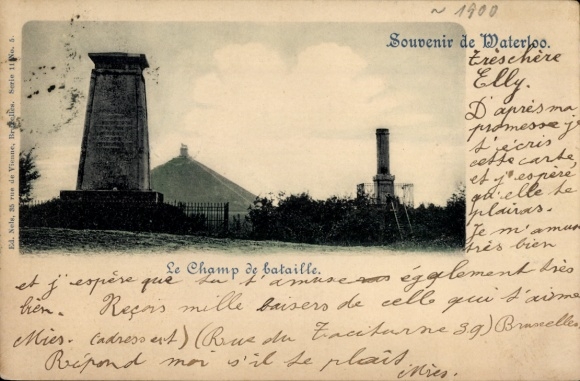 ~ 1900
Souvenir de Waterloo.
Ed. Nels, 25 rue de Vienne, Bruxelles. Serie 11 No. 5.
trèschère
Elly.
D'après ma
promesse je
t'écris
cette carte,
et j'espère
qu'elle te
plairas.
Je m'amuse
très bien
Le Champ de bataille.
et j'espère que tu t'amuse également très
bien. Reçois mille baisers de celle qui t'aime
Mies. (adresse et) (Rue du Taciturne 39) Bruxelles
Répond moi s'il te plaît.
Mies.